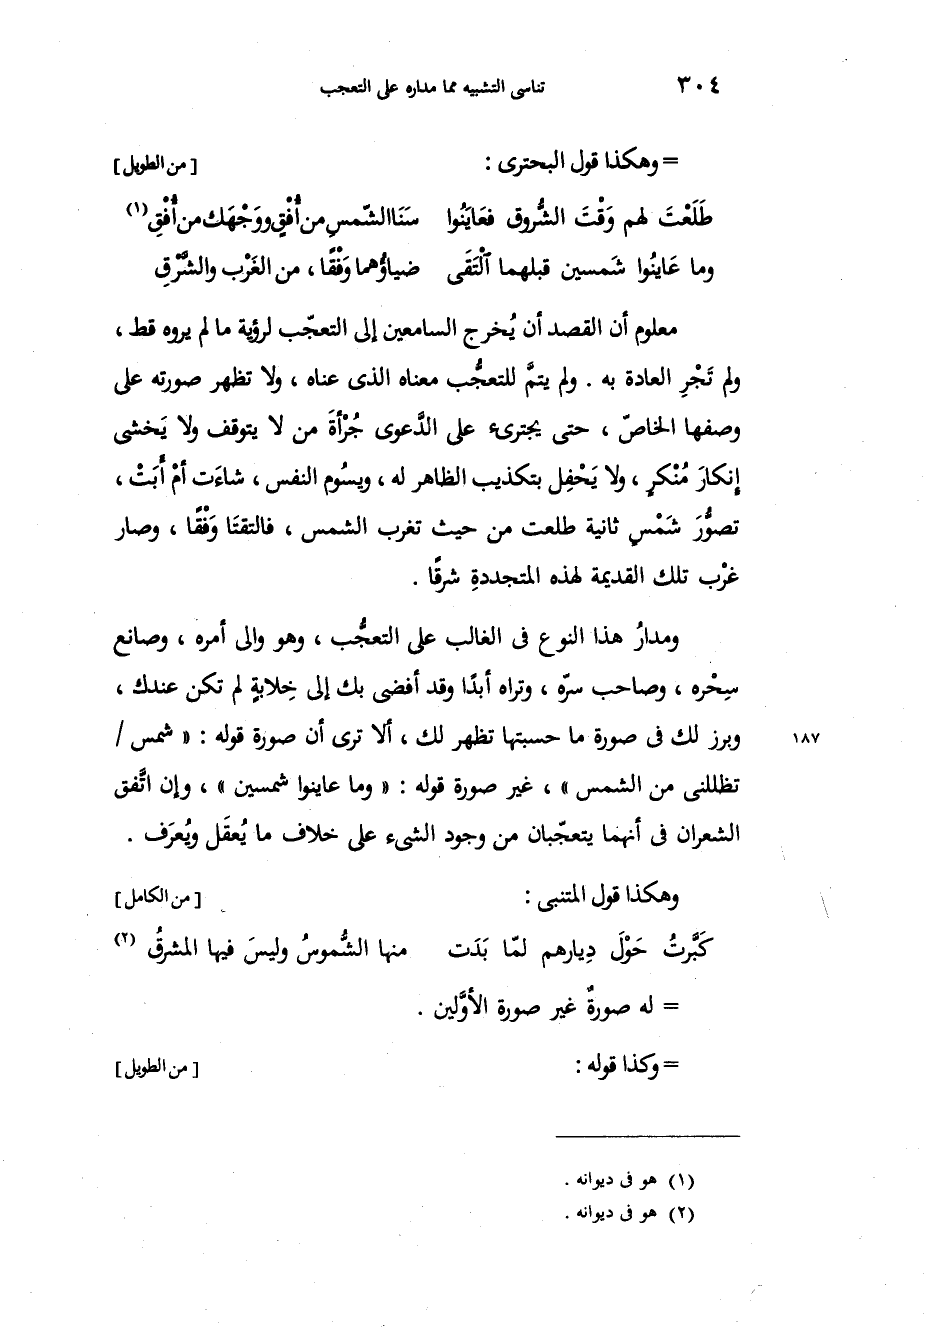 ٣٠٤ تناسى التشبيه مما مداره على التعجب
= وهكذا قول البحترى : [ من الطويل ]
طَلَعْتَ لهم وَقْتَ الشُّروق فعَايَنُوا سَنَا الشّمسِ من أُفْقٍ ووَجْهَك من أُفْقِ (١)
وما عَاينُوا شَمسين قبلهما اْلتَقَى ضياؤُهما وَفْقًا ، من الغَرْب والشَّرْقِ
معلوم أن القصد أن يُخرج السامعين إلى التعجّب لرؤية ما لم يروه قط ،
ولم تَجْرِ العادة به . ولم يتمَّ للتعجُّب معناه الذى عناه ، ولا تظهر صورته على
وصفها الخاصّ ، حتى يجترىء على الدَّعوى جُرْأةَ من لا يتوقف ولا يَخشى
إنكارَ مُنْكرٍ ، ولا يَحْفِل بتكذيب الظاهر له ، ويسُوم النفس ، شاءَت أمْ أَبَتْ ،
تصوُّرَ شَمْسٍ ثانية طلعت من حيث تغرب الشمس ، فالتقتَا وَفْقًا ، وصار
غرْب تلك القديمة لهذه المتجددةِ شرقًا .
ومدارُ هذا النوع فى الغالب على التعجُّب ، وهو والى أمره ، وصانع
سِحْره ، وصاحب سرّه ، وتراه أبدًا وقد أفضى بك إلى خِلابةٍ لم تكن عندك ،
وبرز لك فى صورة ما حسبتها تظهر لك ، ألا ترى أن صورة قوله : « شمس / ١٨٧
تظللنى من الشمس » ، غير صورة قوله : « وما عاينوا شمسين » ، وإن اتَّفق
الشعران فى أنهما يتعجّبان من وجود الشىء على خلاف ما يُعقَل ويُعرَف .
وهكذا قول المتنبى : [ من الكامل ]
كَبَّرتُ حَوْلَ دِيارهم لمّا بَدَت منها الشُّموسُ وليسَ فيها المشرقُ (٢)
= له صورةٌ غير صورة الأوَّلين .
= وكذا قوله : [ من الطويل ]
(١) هو فى ديوانه .
(٢) هو فى ديوانه .